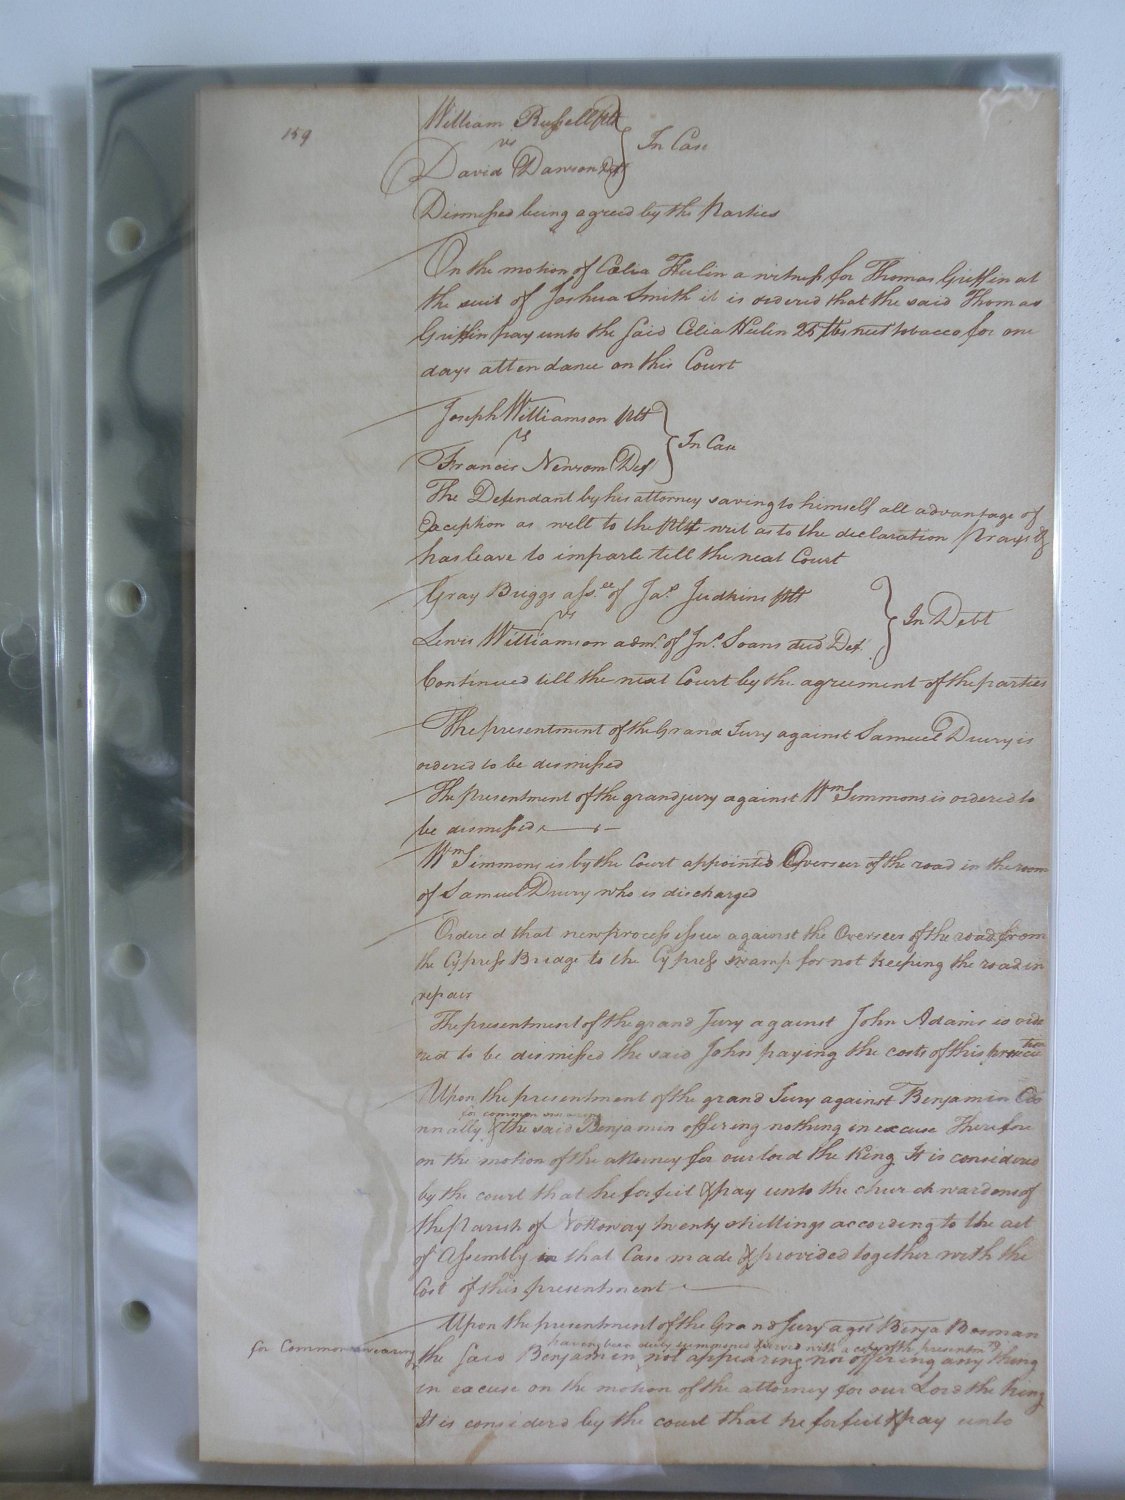 159
William Russell Plt
vs
David Dawson Deft
In Case
Dismissed being agreed by the Parties
On the motion of Celia Hulin a witness for Thomas Griffin at
the suit of Joshua Smith it is ordered that the said Thomas
Griffin pay unto the said Celia Hulin 25 lbs nett tobacco for one
days attendance on this Court
Joseph Williamson Plt
vs
Francis Newsom Def
In Case
The Defendant by his attorney saving to himself all advantage of
Exception as well to the Plts writ as to the declaration Prays &
has leave to imparle till the next Court
Gray Briggs assee of Jas Judkins Plt
vs
Lewis Williamson admr of Jno Soans decd Def
In Debt
Continued till the next Court by the agreement of the parties
The presentment of the Grand Jury against Samuel Drury is
ordered to be dismissed
The presentment of the grand jury against Wm Simmons is ordered to
be dismissed
Wm Simmons is by the Court appointed Overseer of the road in the room
of Samuel Drury who is discharged
Ordered that new process issue against the Overseer of the road from
the Cypress Bridge to the Cypress swamp for not keeping the road in
repair
The presentment of the grand Jury against John Adams is orde
red to be dismissed the said John paying the costs of this prosecution
Upon the presentment of the grand Jury against Benjamin Co
for common swearing
nnally & the said Benjamin offering nothing in excuse Therefore
on the motion of the attorney for our lord the King It is considered
by the court that he forfeit & pay unto the church wardens of
the Parish of Nottoway twenty shillings according to the act
of Assembly in that Case made & provided together with the
Cost of this presentment
Upon the presentment of the Grand Jury agst Benja Bosman
for Common swearing
having been duly summoned & served with a copy of the presentmt
the said Benjamin not appearing nor offering any thing
in excuse on the motion of the attorney for our Lord the King
It is considerd by the court that he forfeit & pay unto